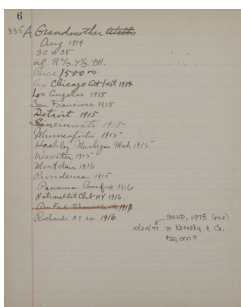 6
335 A Grandmother
Aug 1914
30 x 25
Price 1500 00
Chicago Art Inst 1914
Los Angeles 1915
San Francisco 1915
Detroit 1915
Cincinnati 1915
Minneapolis 1915
Hackley Muskegon Mich 1915
Worcester 1915
Montclair 1916
Providence 1915
Panama Pacific 1916
National Arts Club NY 1916
1917
SOLD, 1978
10/20/78 to Kennedy & Co.
$20,000
Richards NY 1916